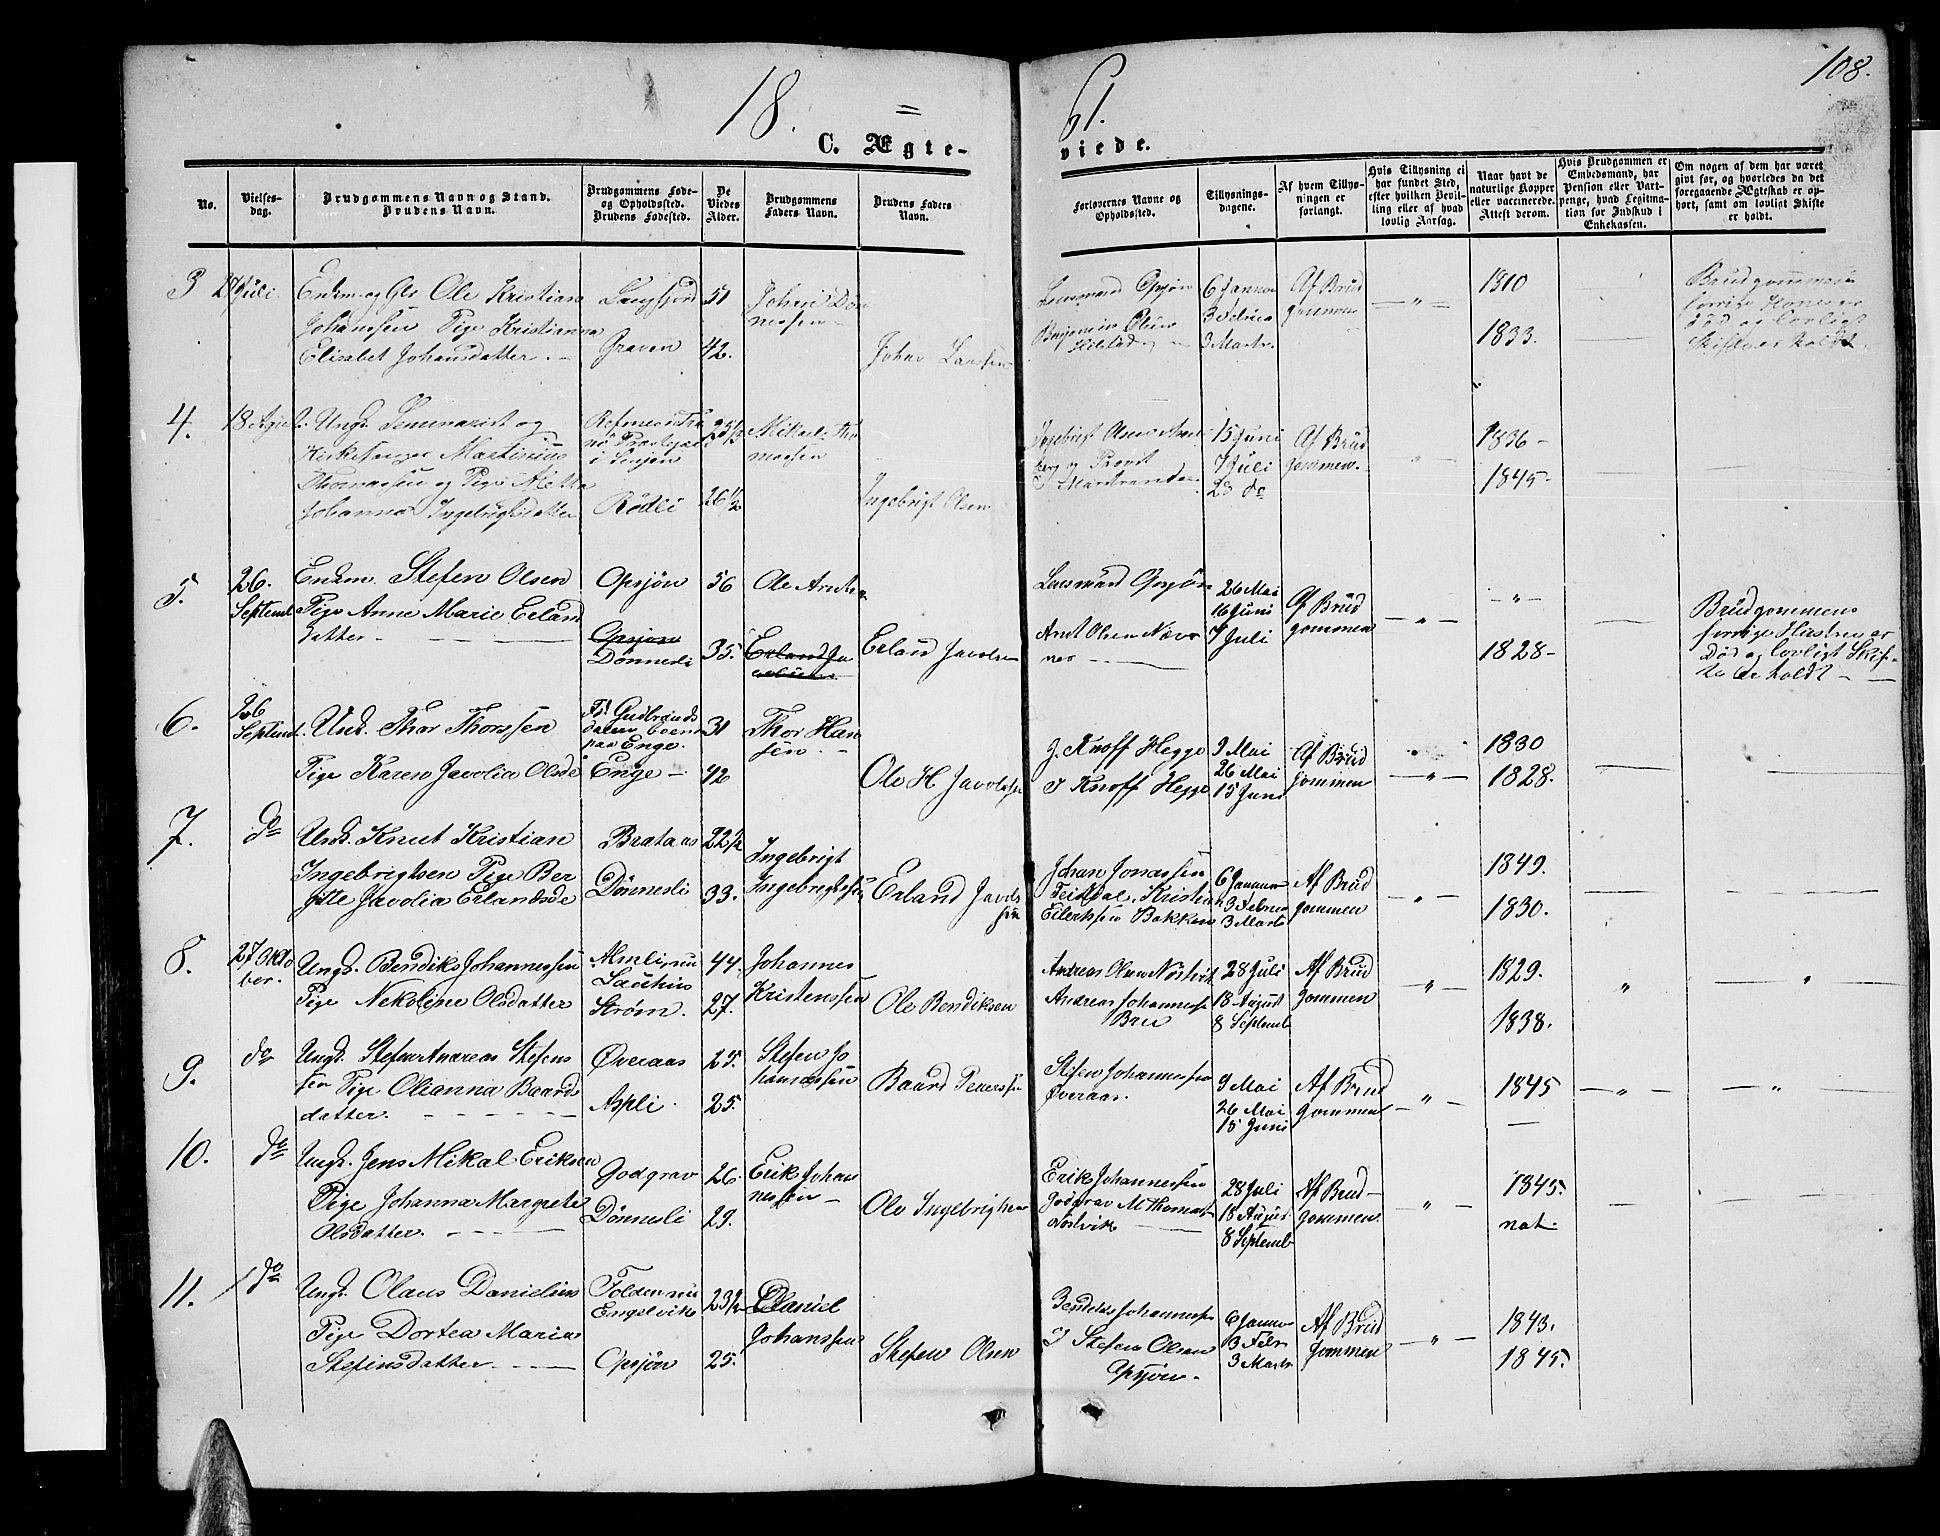 108.
18 61.
C. Ægte- viede.
No.
Vielses-
dag.
Brudgommens Navn og Stand.
Brudens Navn.
Brudgommens Føde-
og Opholdssted.
Brudens Fødested.
De
Viedes
Alder.
Brudgommens
Faders Navn.
Brudens Faders
Navn.
Forlovernes Navne og
Opholdssted.
Tillysnings-
dagene.
Af hvem Tillys-
ningen er
forlangt.
Hvis Tillysning ei
har fundet Sted,
efter hvilken Bevil-
ling eller af hvad
lovlig Aarsag.
Naar havt de
naturlige Kopper
eller vaccinerede.
Attest derom.
Hvis Brudgommen er
Embedsmand, har
Pension eller Vart-
penge, hvad Legitma-
tion for Indskud i
Enkekassen.
Om nogen af dem har været
gift før, og hvorledes da det
foregaaende Ægteskab er op-
hørt, samt om lovligt Skifte
er holdt.
3 27 Juli
Enkm. og Gbr Ole Kristian
Johanssen Pige Kristianna
Elisabet Johansdatter. -
Langfjord
Graven
51
42.
Johan Dön
nessen -
Johan Larsen
Lensmand Opsjön
Benjamin Olsen
6 Januar
3 Februa
3 Marts.
Af Brud
gommen
- " -
1810
1833.
Brudgommens
forrige Kone er
død og lovligt
Skifte er holdt
4. 18 August.
Ungk. Seminarist og
Kirkesanger Martinius
Thomassen og Pige Metta
Johanna Ingebrigtsdatter
Præstegaard
i Senjen
Rödli
26 1/2
Mikal Tho
massen
Ingebrigt Olsen
Ingebrigt Olsen
og Provst
15 Juni
7 Juli
28 do
Af Brud
gommen.
"
1836 -
1845 -
5. 26.
Septemb
Enkm. Stefen Olsen
Pige Anne Marie Erland
datter -
Opsjön
Opsjön
Dönnesli
56
35.
Ole Arntsen
Erland Ja
Erland Javolsen
Lensmand Opsjön
Arnt Olsen Næver
nes -
26 Mai
16 Juni
7 Juli
Af Brud
gommen
- " -
- " -
1828 -
Brudgommens
forrige Hustru er
Død og lovligt Skif-
te er holdt -
6. 26
Septemb.
Unk. Thor Thorssen
Pige Karen Javolia Olsdr
Fd. Gudbrands
dalen
paa Enge.
Enge -
31
42
Thor Han
sen. -
Ole H Javolsen
J. Knoff Hegge
J Knoff Hegge
9 Mai
26 Mai
15 Juni
Af Brud
gommen
- " -
1830
1828.
7. do
Unk. Knut Kristian
Ingebrigtsen Pige Ber
gitte Javolia Erlandsdr
Brataas
Dönnesli
22 1/2
33.
Ingebrigt
Ingebrigtssen
Erland Javols
sen
Johan Jonassen
Teisdal, Kristen
Eilerksen Bakken
6 Januar
3 Februar
3 Marts
Af Brud
gommen
- " -
1849.
1830.
8. 27 Okto
ber.
Ungk. Bendiks Johannessen
Pige Nekoline Olsdatter
Almli nu
Ström.
44
27.
Johannes
Kristenssen
Ole Bendiksen
Andreas Olsen Nöstvik
Andreas Johannessen
Bru
28 Juli
18 August
8 Septemb
Af Brud
gommen
"
1829.
1838.
"
"
9. do
Ungk. Stefen Andreas Stefens
sen Pige Olianna Baards
datter.
Överaas
Aspli.
25.
25.
Stefen Jo
hannessen
Baard Pederssen
Stefen Johannessen
Överaas.
9 Mai
26 Mai
15 Juni
Af Brud
gommen
- " -
1845
-
- " -
- " -
10. do
Ungk. Jens Mikal Eriksen
Pige Johanna Margrete
Olsdatter.
Godgrav
Dönnesli
26.
29.
Erik Johan
nessen -
Ole Ingebrigtsen
Erik Johannessen
Godgrav M Thomas
Nöstvik
28 Juli
18 August
8 Septemb
Af Brud -
gommen.
"
1845.
nat.
11. do
Ungk. Olaus Danielsen
Pige Dortea Maria
Stefensdatter.
Folden nu
Engelvik
Opsjön
23 1/2
25.
Daniel
Johanssen
Stefen Olsen
Bendiks Johannessen
J Stefen Olsen
Opsjön.
6 Januar
3 Febr
3 Marts
Af Brud
gommen
- " -
1843.
1845.